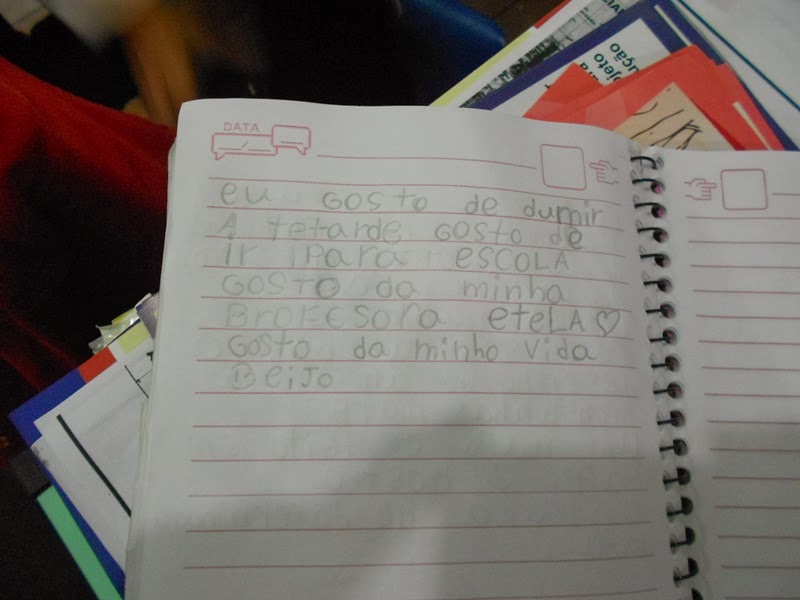 OJETO
UÇÃO
DATA
eu GOSTO de dumir
A tetarde GOSTO de
ir para ESCOLA
GOSTO da minha
BROFESORA eteLA♡
GOSTO da minho vida
BeiJO